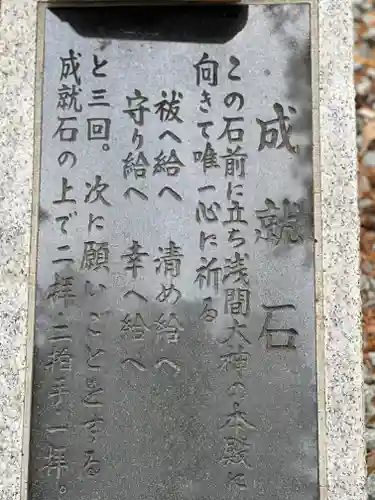 成就石
この石前に立ち浅間大神の本殿に
向きて唯一心に祈る
祓へ給へ　清め給へ
守り給へ　幸へ給へ
と三回。次に願いごとをする
成就石の上で二拝・三拍手・一拝。